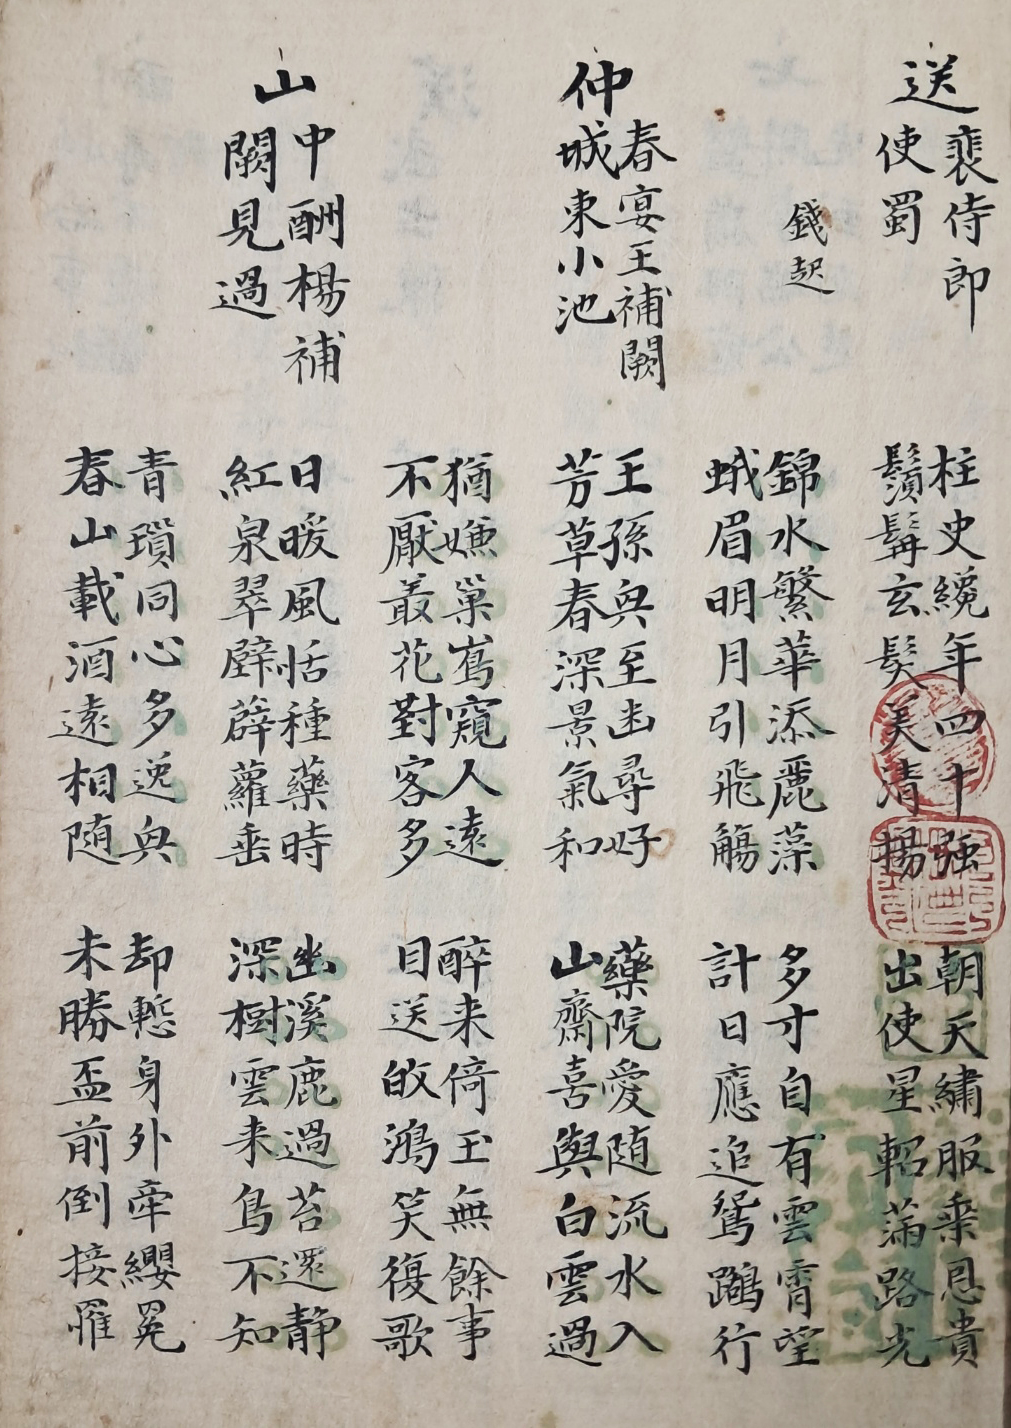 送裴侍郎
使蜀
錢起
柱史纔年四十强
鬚髯玄髮美清揚
朝天繡服乗恩貴
出使星軺滿路光
錦水繁華添麗藻
蛾眉明月引飛觴
多才自有雲霄望
計日應追鴛鷴行
仲春宴王補闕
城東小池
王孫興至幽尋好
芳草春深景氣和
藥院愛随流水入
山齋喜與白雲過
猶嫌巢鳥窺人遠
不厭叢花對客多
醉来倚玉無餘事
目送皈鴻笑復歌
山中酬楊補
闕見過
日暖風恬種藥時
紅泉翠壁薜蘿垂
幽溪鹿過苔還静
深樹雲来鳥不知
青瑣同心多逸興
春山載酒遠相随
却慙身外牽纓冕
未勝盃前倒接罹